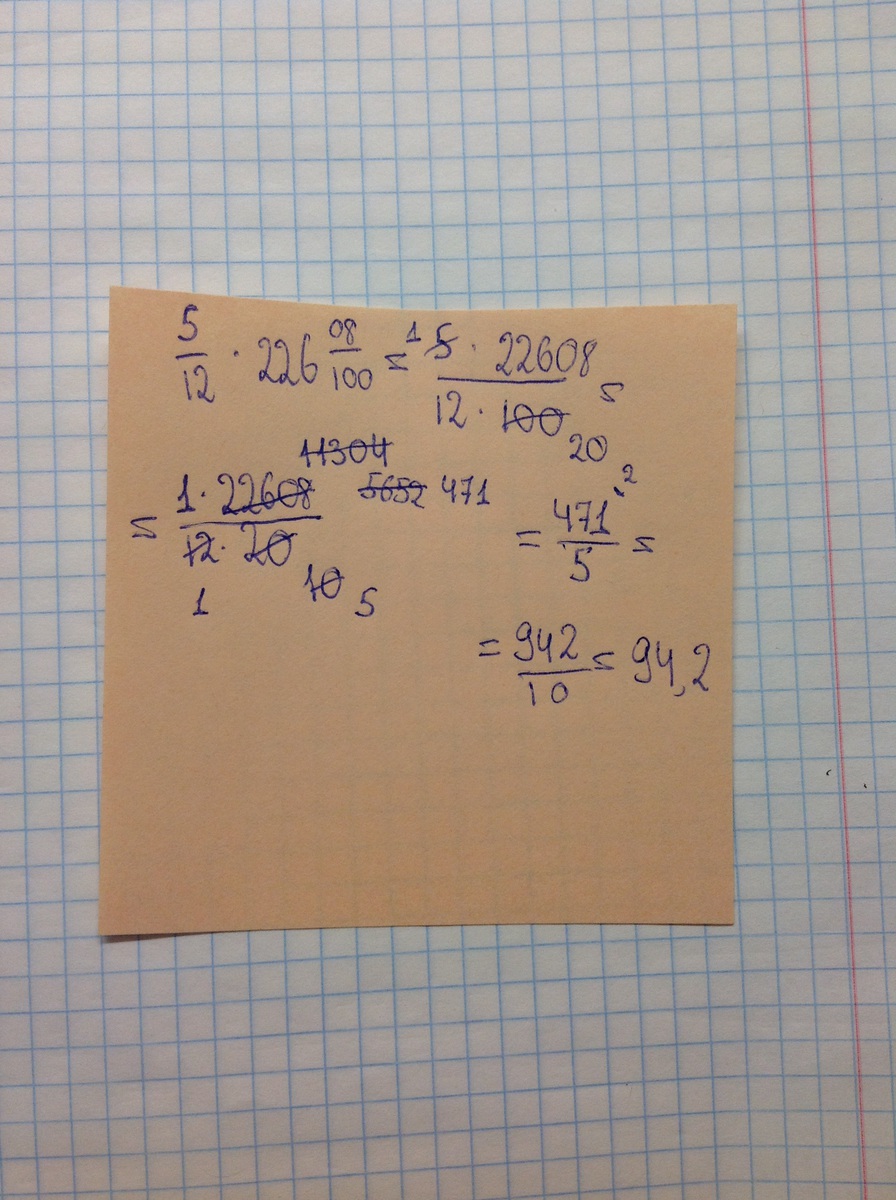 5/12 · 226 08/100 = 1 5 · 22608 / 12 · 100 20 =
11304
= 1 · 22608 / 12 · 20 5652 471
1 10 5
= 471 · 2 / 5 =
= 942/10 = 94,2